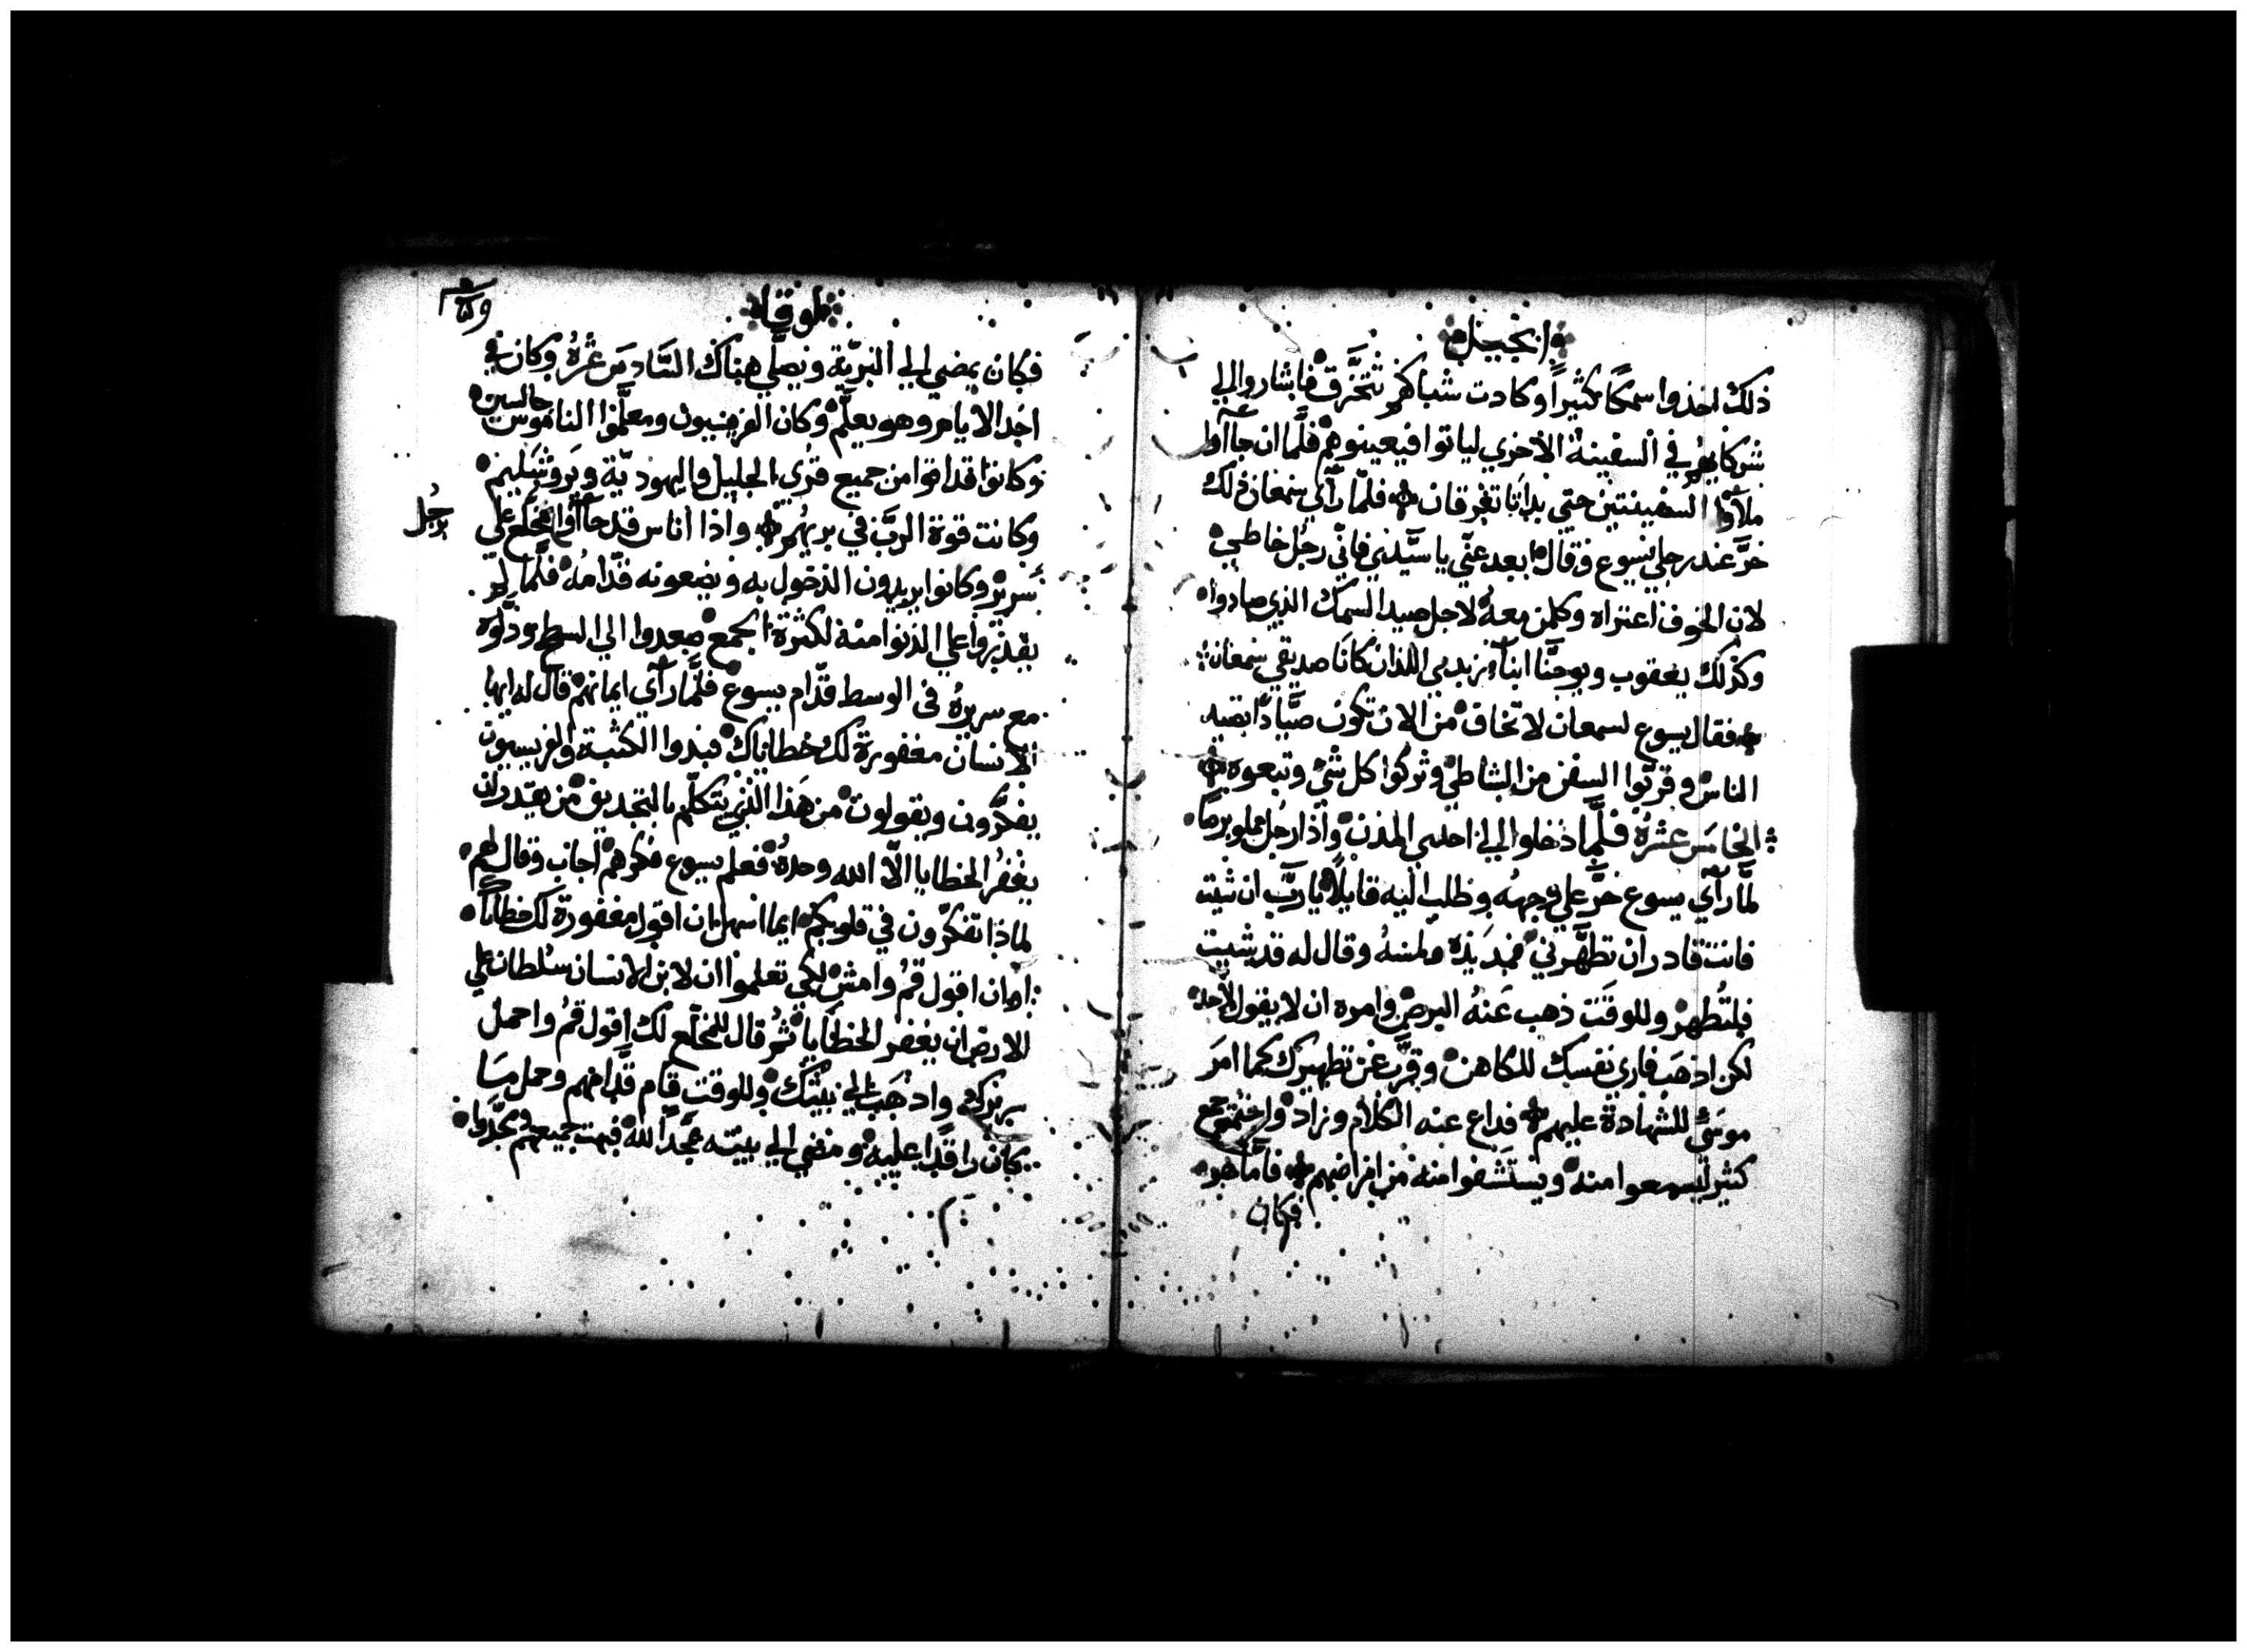 انجيل
ذلك اخذوا سمكًا كثيرًا وكادت شباكهم تتخرّق فاشاروا الي
شركايهم في السفينة الاخري لياتوا فيعينوهم فلمّا ان جاآوا
ملاؤا السفينتين حتي بداتا تغرقان فلمّا رآي سمعان ذلك
خرّ عند رجلي يسوع وقال ابعد عنّي يا سيّدي فانّي رجُل خاطي
لان الخوف اعتراه وكلمن معهُ لاجل صيد السمك الذي صادوا
وكذلك يعقوب ويوحنّا ابنآ زبدي اللذان كانا صديقي سمعان
فقال يسوع لسمعان لا تخاف من الان تكون صيّادًا تصيد
الناس وقربّوا السفن من الشاطي وتركوا كل شيّ وتبعوه
الخامس عشرة فلمّا دخلوا الي احدي المدن واذا رجل مملو برصًا
لمّا رآي يسوع خرّ علي وجهه وطلب اليه قايلًا يا ربّ ان شيت
فانت قادر ان تطهّرني فمد يده ولمسهُ وقال له قد شيت
فلتُطهر وللوقت ذهب عَنهُ البرص وامره ان لا يقول لاحد
لكن اذهب فاري نفسك للكاهن وقرّب عن تطهيرك كما امَر
موسَي للشهادة عليهم فداع عنه الكلام وزاد واجتمع جمع
كثير ليسمعوا منه ويستشفوا منه من امراضهم فامّا هو
فكان
لوقا
فكان يمضي الي البريّة ويصلّي هناك السَّادسَ عشرُة وكان في
احد الايام وهو يعلّم وكان الفريسيون ومعلّموا الناموس جالسين
وكانوا قد اتوا من جميع قرُي الجليل واليهوديّة ويروشليم
وكانت قوة الربّ في بريهُم واذا اناس قد جاآوا بمخلّع علي
برجُل
سرير وكانوا يريدون الدخول به ويضعونه قدّامهُ فلمّا لم
يقدروا علي الدنوا منه لكثرة الجمع صعدوا الي السطح ودلّوه
مع سريرهُ في الوسط قدّام يسوع فلمّا رآي ايمانهم قال له ايها
الانسان مغفورة لك خطاياك فبدوا الكتبة والفريسيون
يفكّرون ويقولون من هذا الذي يتكلّم بالتجديف من يقدر ان
يغفرُ الخطايا الّا الله وحدهُ فعلم يسوع فكرهم اجاب وقال لهم
لماذا تفكّرون في قلوبكم ايما اسهل ان اقول مغفورة لك خطاياك
ام ان اقول قمُ وامش لكي تعلموا ان لابن الانسان سُلطان علي
الارض ان يغفر الخطايا ثمُ قال للمخلّع لك اقول قمُ واحمل
سريرك واذهَب الي بيتك وللوقت قام قدّامهم وحمل ما
كان راقدًا عليه ومضي الي بيته ممجّدًا لله فبهت جميعهم ومجّدوا